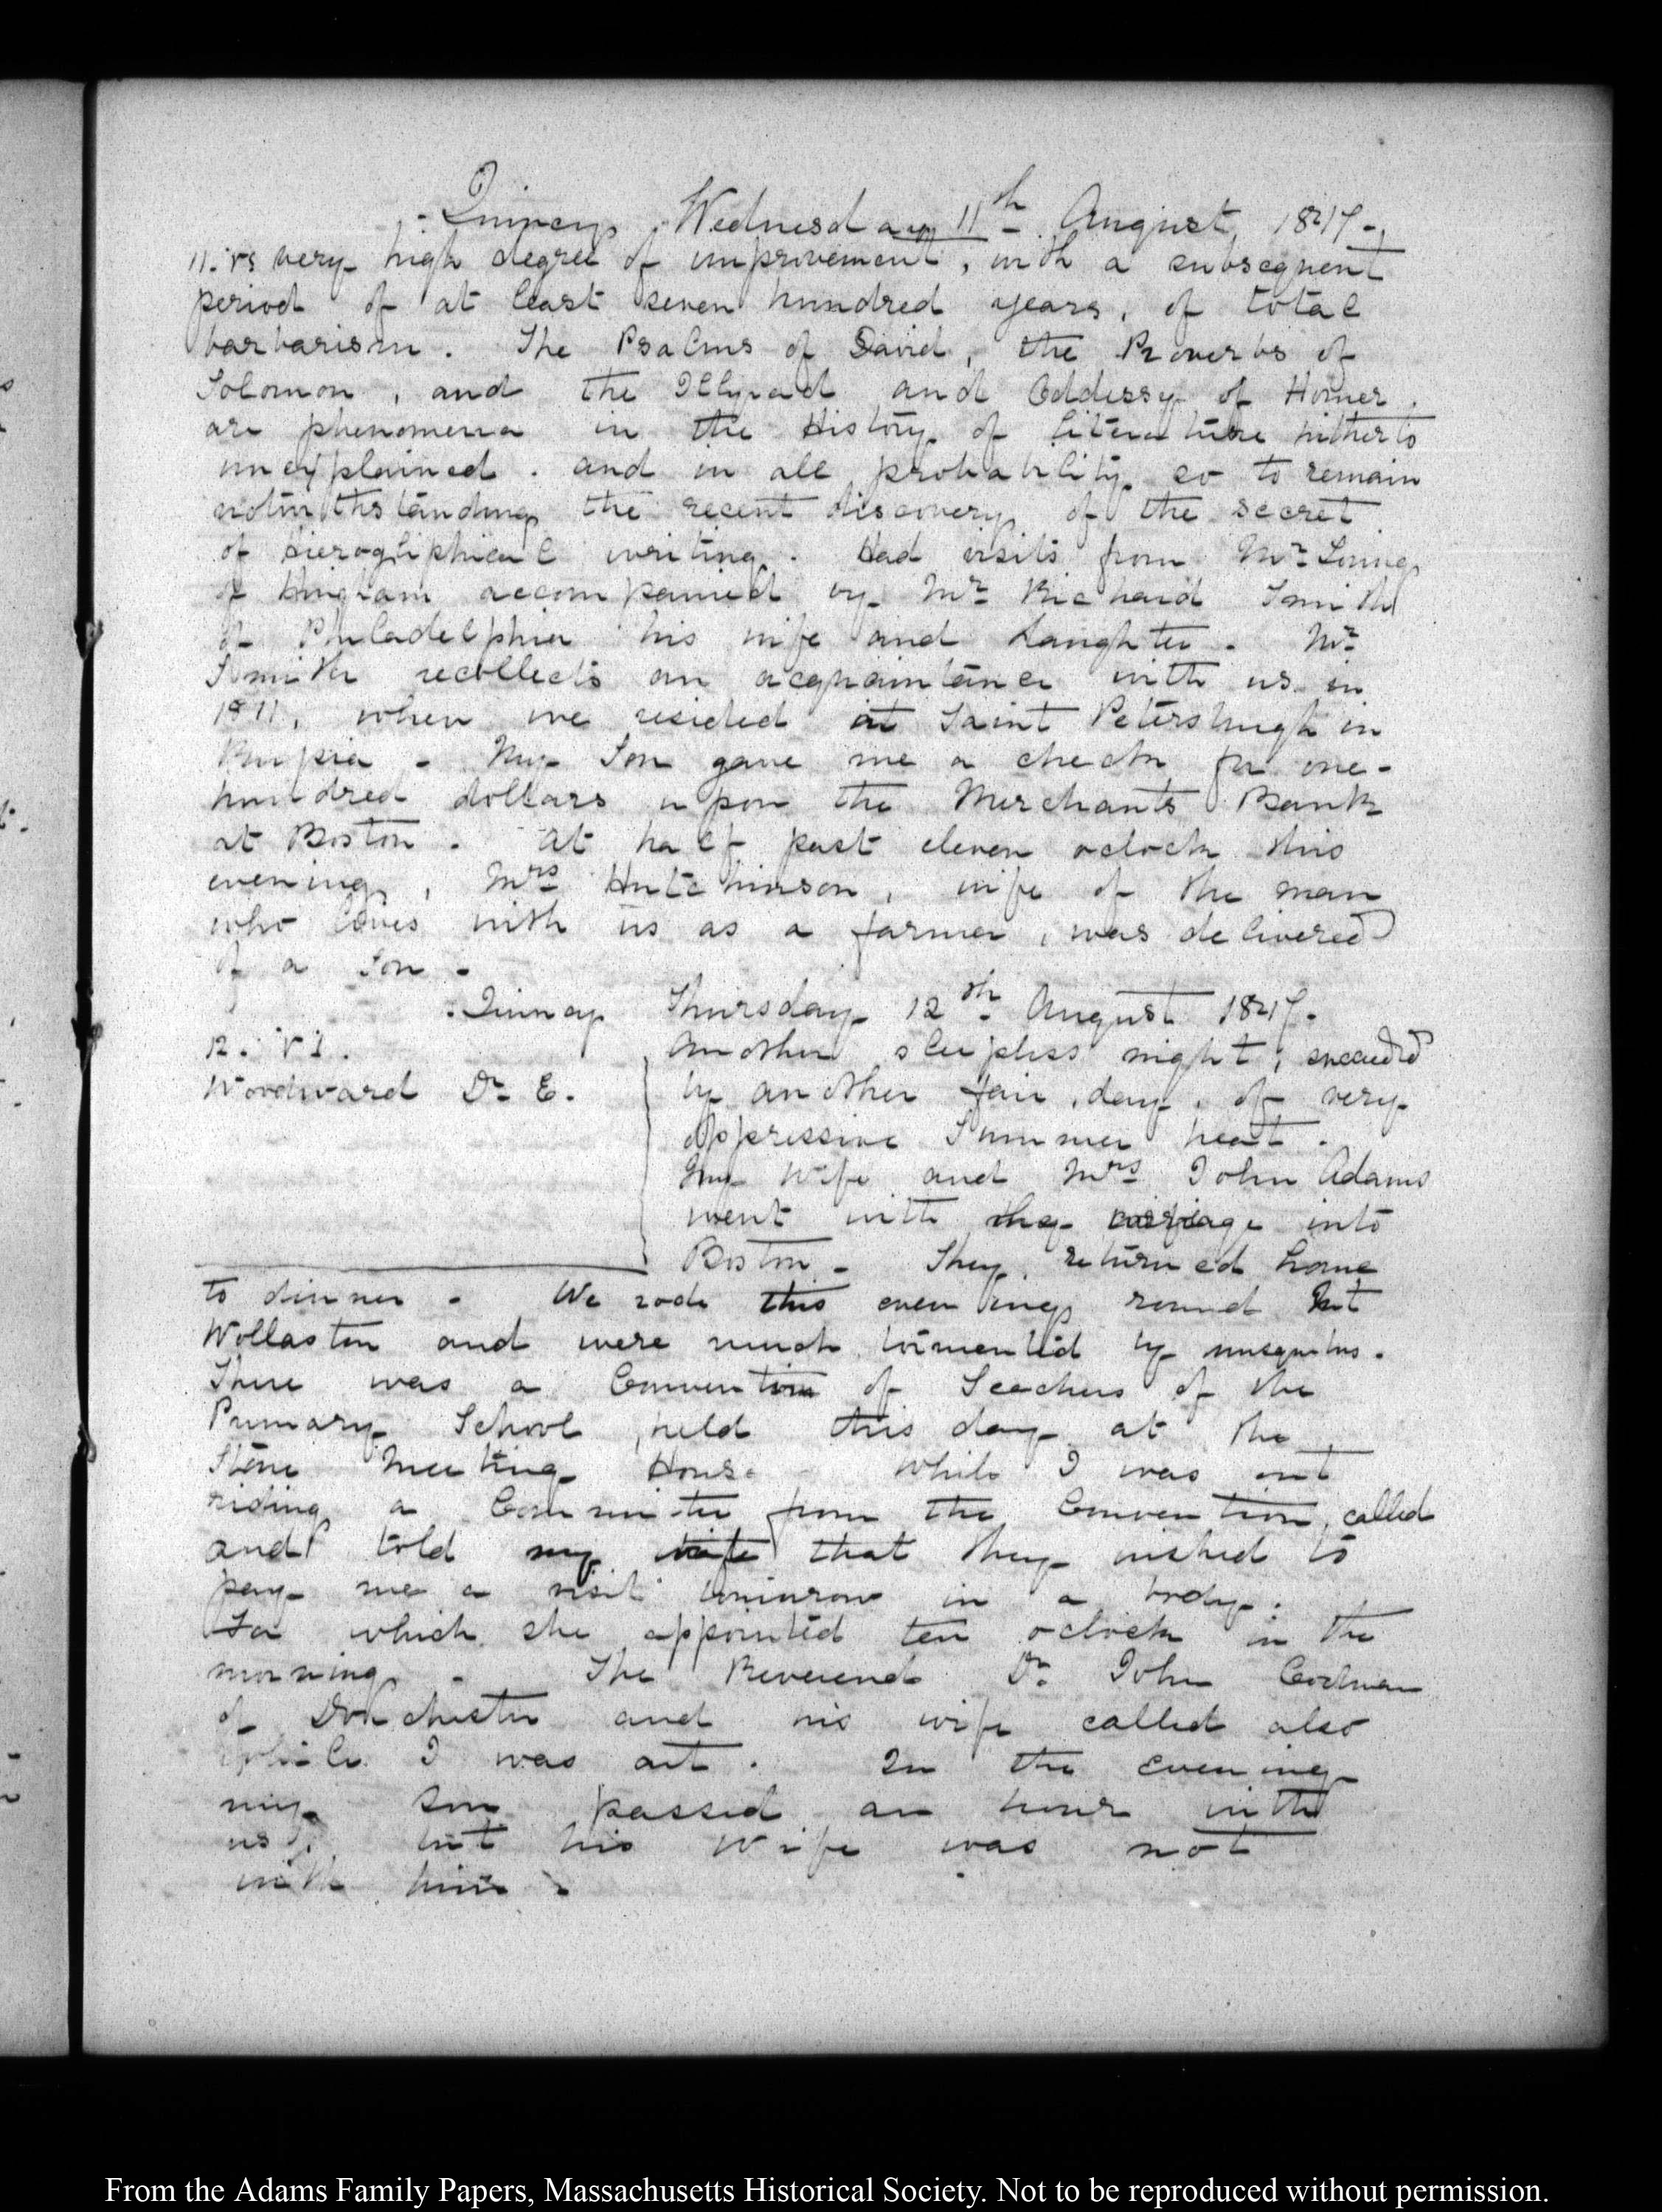 Quincy Wednesday 11th August 1847.
11. V. very high degree of improvement, with a subsequent
period of at least seven hundred years, of total
barbarism. The Psalms of David, the Proverbs of
Solomon, and the Illyiad and Oddessy of Homer.
are phenomena in the History of literature hitherto
unexplained. and in all probability so to remain
notwithstanding the recent discovery of the secret
of Hierogliphical writing. Had visits from Mr Loring
of Hingham accompanied by Mr Richard Smith
of Philadelphia his wife and daughter. Mr
Smith recollects an acquaintance with us in
1811, when we resided at Saint Petersburgh in
Russia - My Son gave me a check for one-
hundred dollars upon the Merchants Bank
at Boston. At half past eleven oclock this
evening, Mrs Hutchinson, wife of the man
who lives with us as a farmer, was delivered
of a Son -
Quincy Thursday 12th August 1847.
12. VI. Another sleepless night, succeeded
Woodward Dr. E. by another fair, day, of very
oppressive Summer heat.
My Wife and Mrs John Adams
went with the carriage into
Boston - They returned home
to dinner - We rode this evening round Mt
Wollaston and were much tormented by musquitos.
There was a Convention of Teachers of the
Primary School held this day at the
Stone Meeting House While I was out
riding a Committee from the Convention called
and told my wife that they wished to
pay me a visit tomorrow in a body.
For which she appointed ten oclock in the
morning - The Reverend Dr. John Codman
of Dorchester and his wife called also
while I was out. In the evening
my Son passed an hour with
us, but his Wife was not
with him -
From the Adams Family Papers, Massachusetts Historical Society. Not to be reproduced without permission.